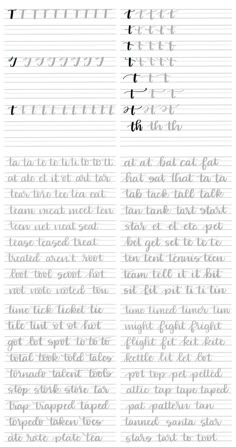 T T T T T T T T T T
t t t t t
t t t t t
t t t t t
t t t t t
t t t t
th th th
ta ta te to ti ti to to tt
at ate et it ot art tar
tear tore tee tea eat
team meat meet ten
teen net neat seat
tease teased treat
treated aren't root
loot tool scoot hot
root note noted ton
time tick ticket tie
tile tint ot ot hot
got lot spot to to to
total took told tales
tornado talent tools
stop stork store tar
trap trapped taped
torpedo taken toes
ate rate plate tea
at at bat cat fat
hat sat that ta ta
tab tack tall talk
tan tank tart start
star et et etc pet
bet get set te te te
ten tent tennis teen
team tell it it bit
sit fit pit ti ti tin
time timed timer tim
might fight fright
flight fit kit kite
kettle lit let lot
pot top pet petted
attic tap tape taped
pat pattern tan
tanned santa star
stars tart to toot